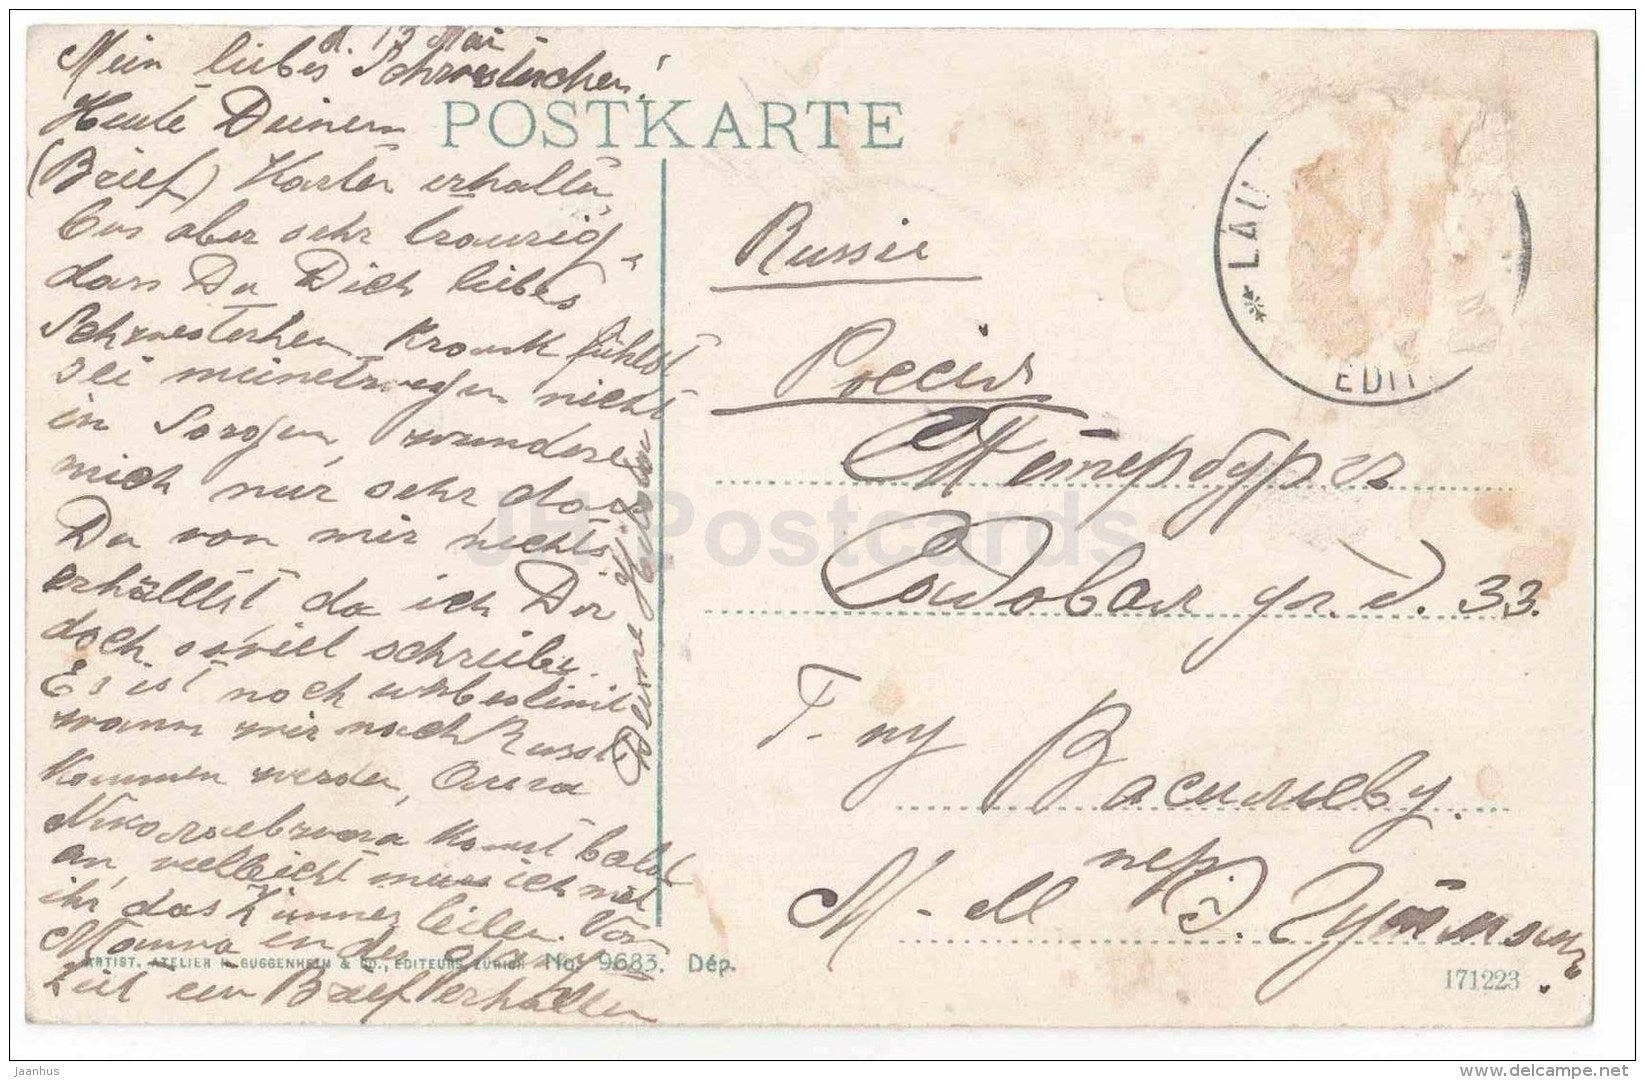 d. 13 Mai
Mein liebes Schwesterchen!
Heute Deinen
(Brief) Karten erhalten,
bin aber sehr traurig
dass Du Dich liebes
Schwesterhen krank fühlst
sei meinetwegen nicht
in Sorgen, wundere
mich nur sehr dass
Du von mir nichts
erhälltst, da ich Dir
doch soviel schreibe.
Es ist noch unbestimt
wann wir nach Russl
kommen werden, Anna
Nikolaewna komt bald
an, vielleicht muss ich mit
ihr das Zimmer teilen. Von
Mama in der
Zeit ein Brief erhalten
Deine
POSTKARTE
LAU
EDIT
Russie
Россія
С Петербургъ
Садовая ул. д. 33.
Г-ну Васильеву.
пер.
М-ll Э.
ARTIST. ATELIER H. GUGGENHEIM & CO., EDITEURS, ZURICH No. 9683. Dép.
171223
JH Postcards
Jaanhus
www.delcampe.net